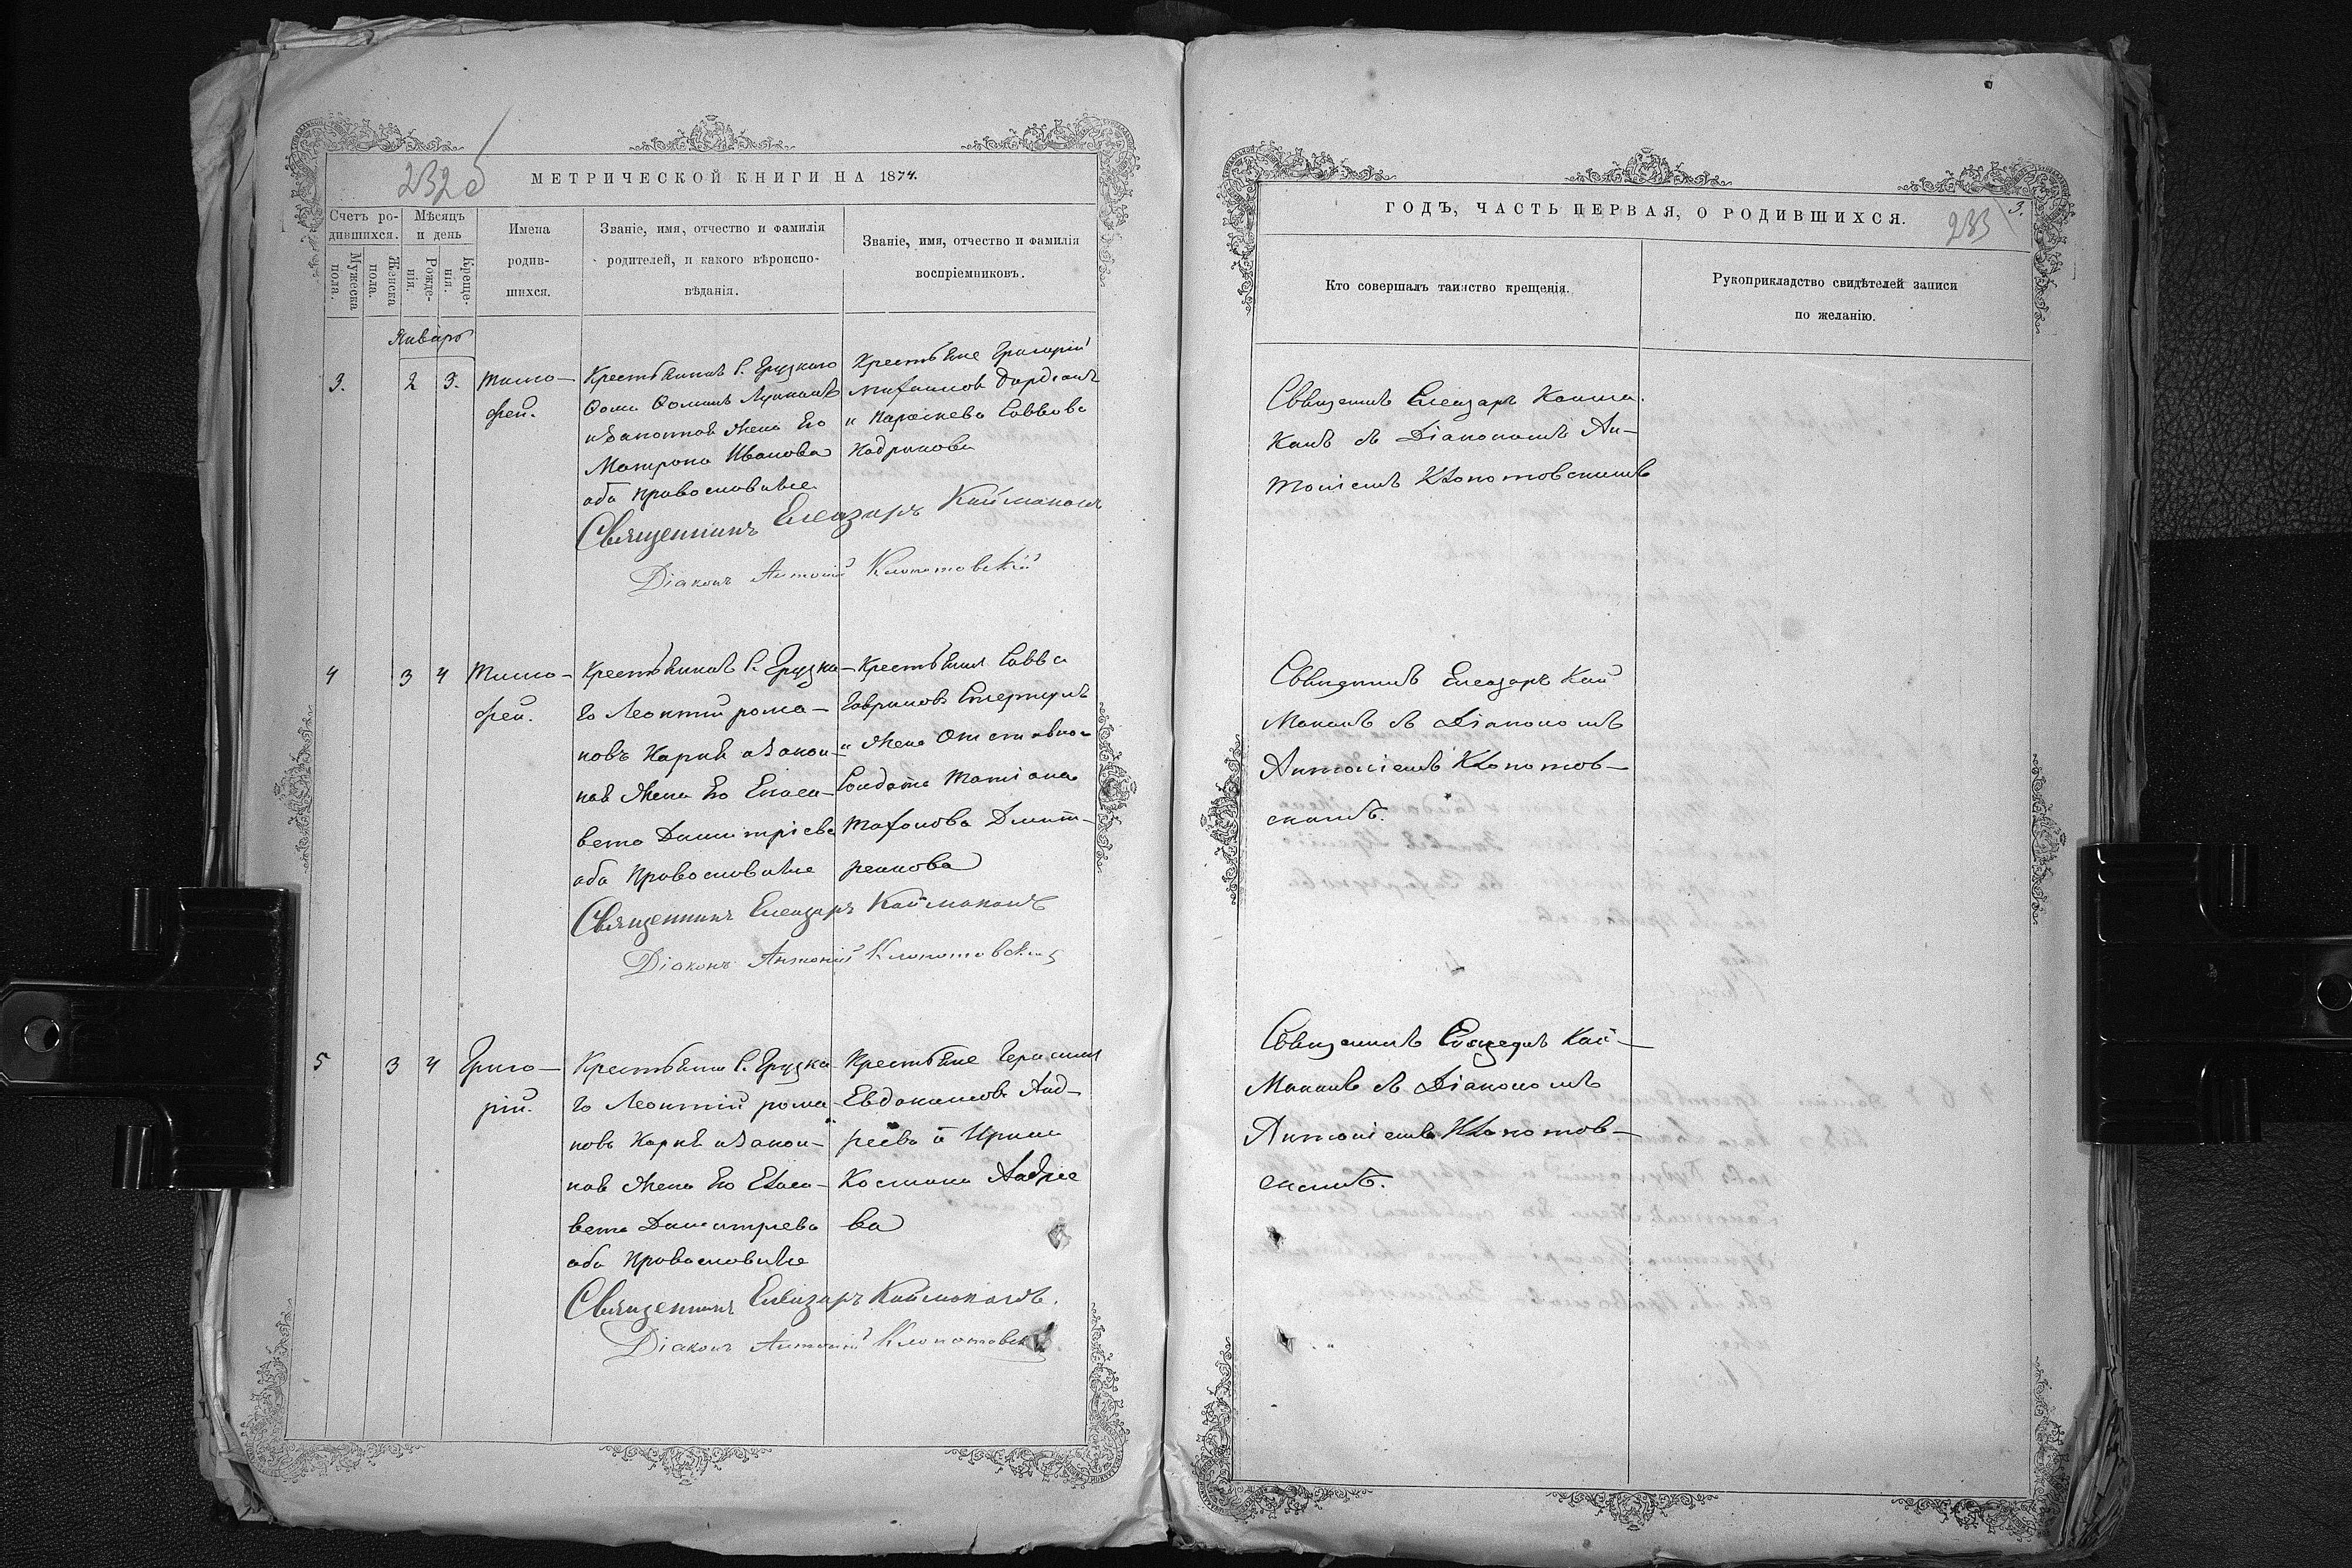 232 б
МЕТРИЧЕСКОЙ КНИГИ НА 1874.
Счетъ родившихся.
Мужеска пола.
Женска пола.
Мѣсяцъ и день
Рожденія.
Крещенія.
Имена родившихся.
Званіе, имя, отчество и фамилія
родителей, и какого вѣроиспо-
вѣданія.
Званіе, имя, отчество и фамилія
воспріемниковъ.
Январь
3. 2 3.
Тимо-
фей.
Крестьянинъ С. Грузкаго
Ѳома Ѳоминъ
изаконная Жена Его
Матрона Иванова
оба православные
Крестьяне Григорій
и Параскева Саввова
Священникъ Елеазаръ Каймаканъ
Діаконъ Антоній Клопотовскій
4 3 4
Тимо-
фей.
Крестьянинъ С. Грузка-
го Леонтій Рома-
новъ Карна изакон-
ная Жена Его Елиса-
вета Димитріева
оба Православные
Крестьянин Савва
Гавриловъ
и Жена Отставнаго
Солдата Татіана
реикова
Священникъ Елеазаръ Каймаканъ
Діаконъ Антоній Клопотовскій
5 3 4
Григо-
рій.
Крестьянинъ С. Грузка-
го Леонтій Рома-
новъ Карна изакон-
ная Жена Его Елиса-
вета Димитріева
оба Православные
Крестьяне Герасимъ
Евдокимовъ Анд-
реева и Ирина
Космина Андрее
ва
Священникъ Елеазаръ Каймаканъ.
Діаконъ Антоній Клопотовскій
ГОДЪ, ЧАСТЬ ПЕРВАЯ, О РОДИВШИХСЯ.
3.
233
Кто совершалъ таинство крещенія.
Рукоприкладство свидѣтелей записи
по желанію.
Священникъ Елеазаръ Кайма-
канъ съ Діакономъ Ан-
тоніемъ Клопотовскимъ
Священникъ Елеазаръ Кай
маканъ съ Діакономъ
Антоніемъ Клопотов-
скимъ.
Священникъ Елеазаръ Кай-
маканъ съ Діакономъ
Антоніемъ Клопотов-
скимъ.